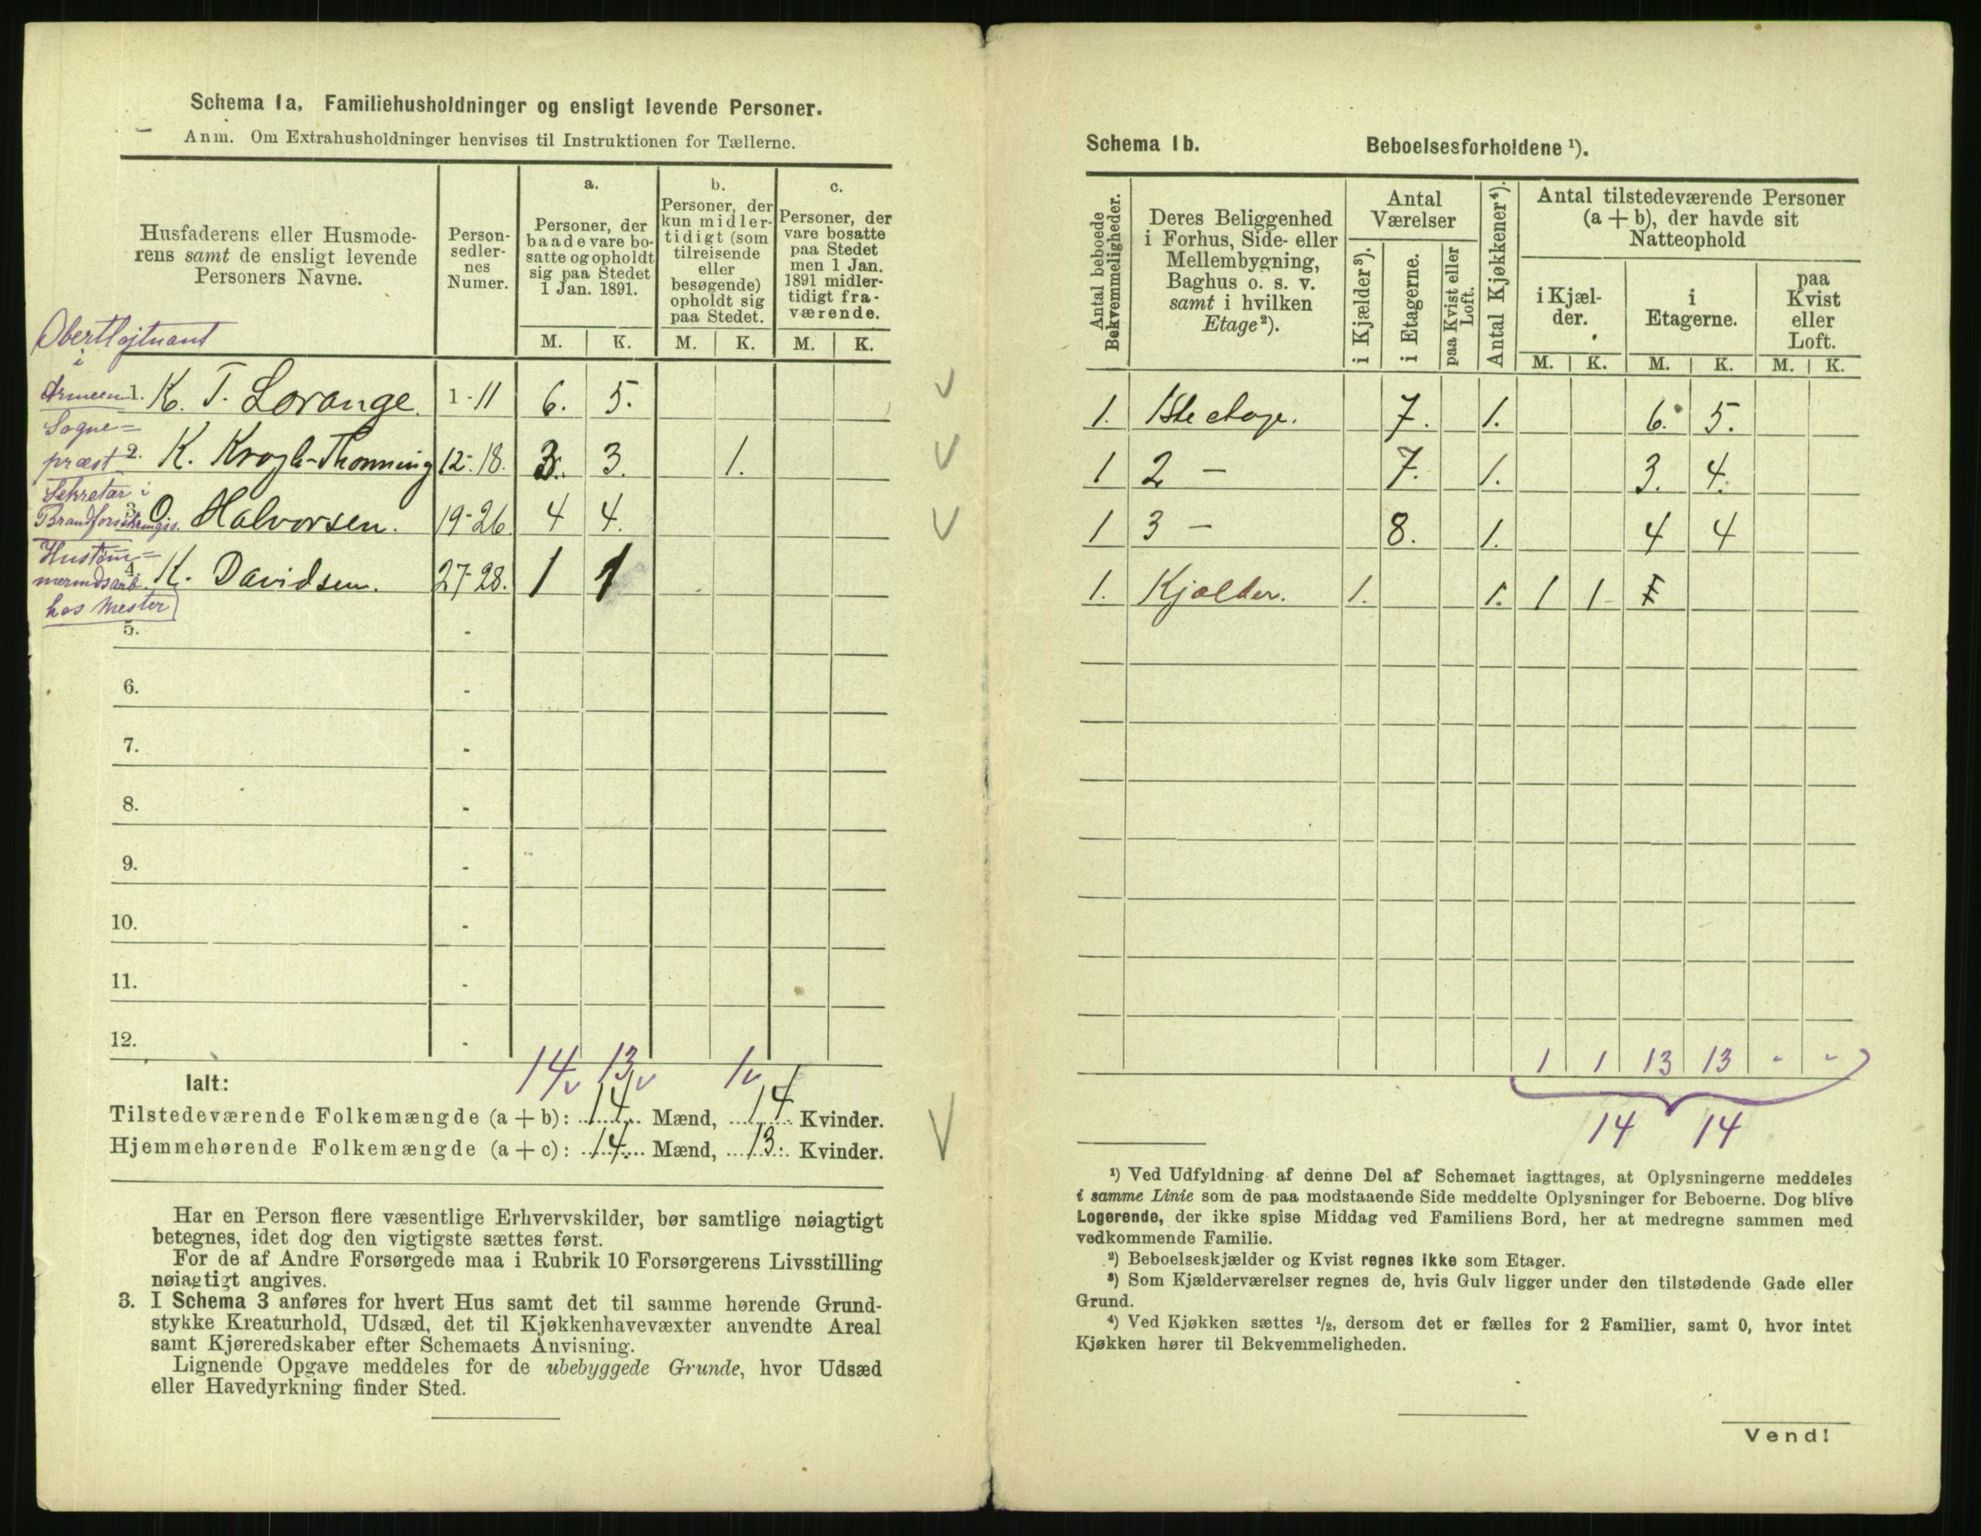 Schema 1a. Familiehusholdninger og ensligt levende Personer.
Anm. Om Extrahusholdninger henvises til Instruktionen for Tællerne.
Husfaderens eller Husmode-
rens samt de ensligt levende
Personers Navne.
Person-
sedler-
nes
Numer.
a.
Personer, der
baade vare bo-
satte og opholdt
sig paa Stedet
1 Jan. 1891.
b.
Personer, der
kun midler-
tidigt (som
tilreisende
eller
besøgende)
opholdt sig
paa Stedet.
c.
Personer, der
vare bosatte
paa Stedet
men 1 Jan.
1891 midler-
tidigt fra-
værende.
M. K. M. K. M. K.
Obertløjtnant
i
Armeen 1. K. T. Lorange. 1-11 6. 5.
Sogne=
præst 2. K. Krogh-Thonning 12-18. 3. 3. 1.
Sekretær i
3. O. Halvorsen. 19-26. 4 4.
Hustøm=
4. K. Davidsen. 27-28. 1 1
hos Mester
5. -
6. -
7. -
8. -
9. -
10. -
11. -
12. -
Ialt: 14 13 1
Tilstedeværende Folkemængde (a + b): 14 Mænd, 14 Kvinder.
Hjemmehørende Folkemængde (a + c): 14. Mænd, 13. Kvinder.
Har en Person flere væsentlige Erhvervskilder, bør samtlige nøiagtigt
betegnes, idet dog den vigtigste sættes først.
For de af Andre Forsørgede maa i Rubrik 10 Forsørgerens Livsstilling
nøiagtigt angives.
3. I Schema 3 anføres for hvert Hus samt det til samme hørende Grund-
stykke Kreaturhold, Udsæd, det til Kjøkkenhavevæxter anvendte Areal
samt Kjøreredskaber efter Schemaets Anvisning.
Lignende Opgave meddeles for de ubebyggede Grunde, hvor Udsæd
eller Havedyrkning finder Sted.
Schema 1b. Beboelsesforholdene ¹).
Antal beboede
Bekvemmeligheder.
Deres Beliggenhed
i Forhus, Side- eller
Mellembygning,
Baghus o. s. v.
samt i hvilken
Etage²).
Antal
Værelser
i Kjælder³).
i Etagerne.
paa Kvist eller
Loft.
Antal Kjøkkener⁴).
Antal tilstedeværende Personer
(a + b), der havde sit
Natteophold
i Kjæl-
der.
i
Etagerne.
paa
Kvist
eller
Loft.
M. K. M. K. M. K.
1. 1ste etage. 7. 1. 6. 5.
1 2 - 7. 1. 3. 4.
1 3 - 8. 1. 4 4
1. Kjælder. 1. 1. 1 1
1 1 13 13 - -
14 14
¹) Ved Udfyldning af denne Del af Schemaet iagttages, at Oplysningerne meddeles
i samme Linie som de paa modstaaende Side meddelte Oplysninger for Beboerne. Dog blive
Logerende, der ikke spise Middag ved Familiens Bord, her at medregne sammen med
vedkommende Familie.
²) Beboelseskjælder og Kvist regnes ikke som Etager.
³) Som Kjælderværelser regnes de, hvis Gulv ligger under den tilstødende Gade eller
Grund.
⁴) Ved Kjøkken sættes ½, dersom det er fælles for 2 Familier, samt 0, hvor intet
Kjøkken hører til Bekvemmeligheden.
Vend!